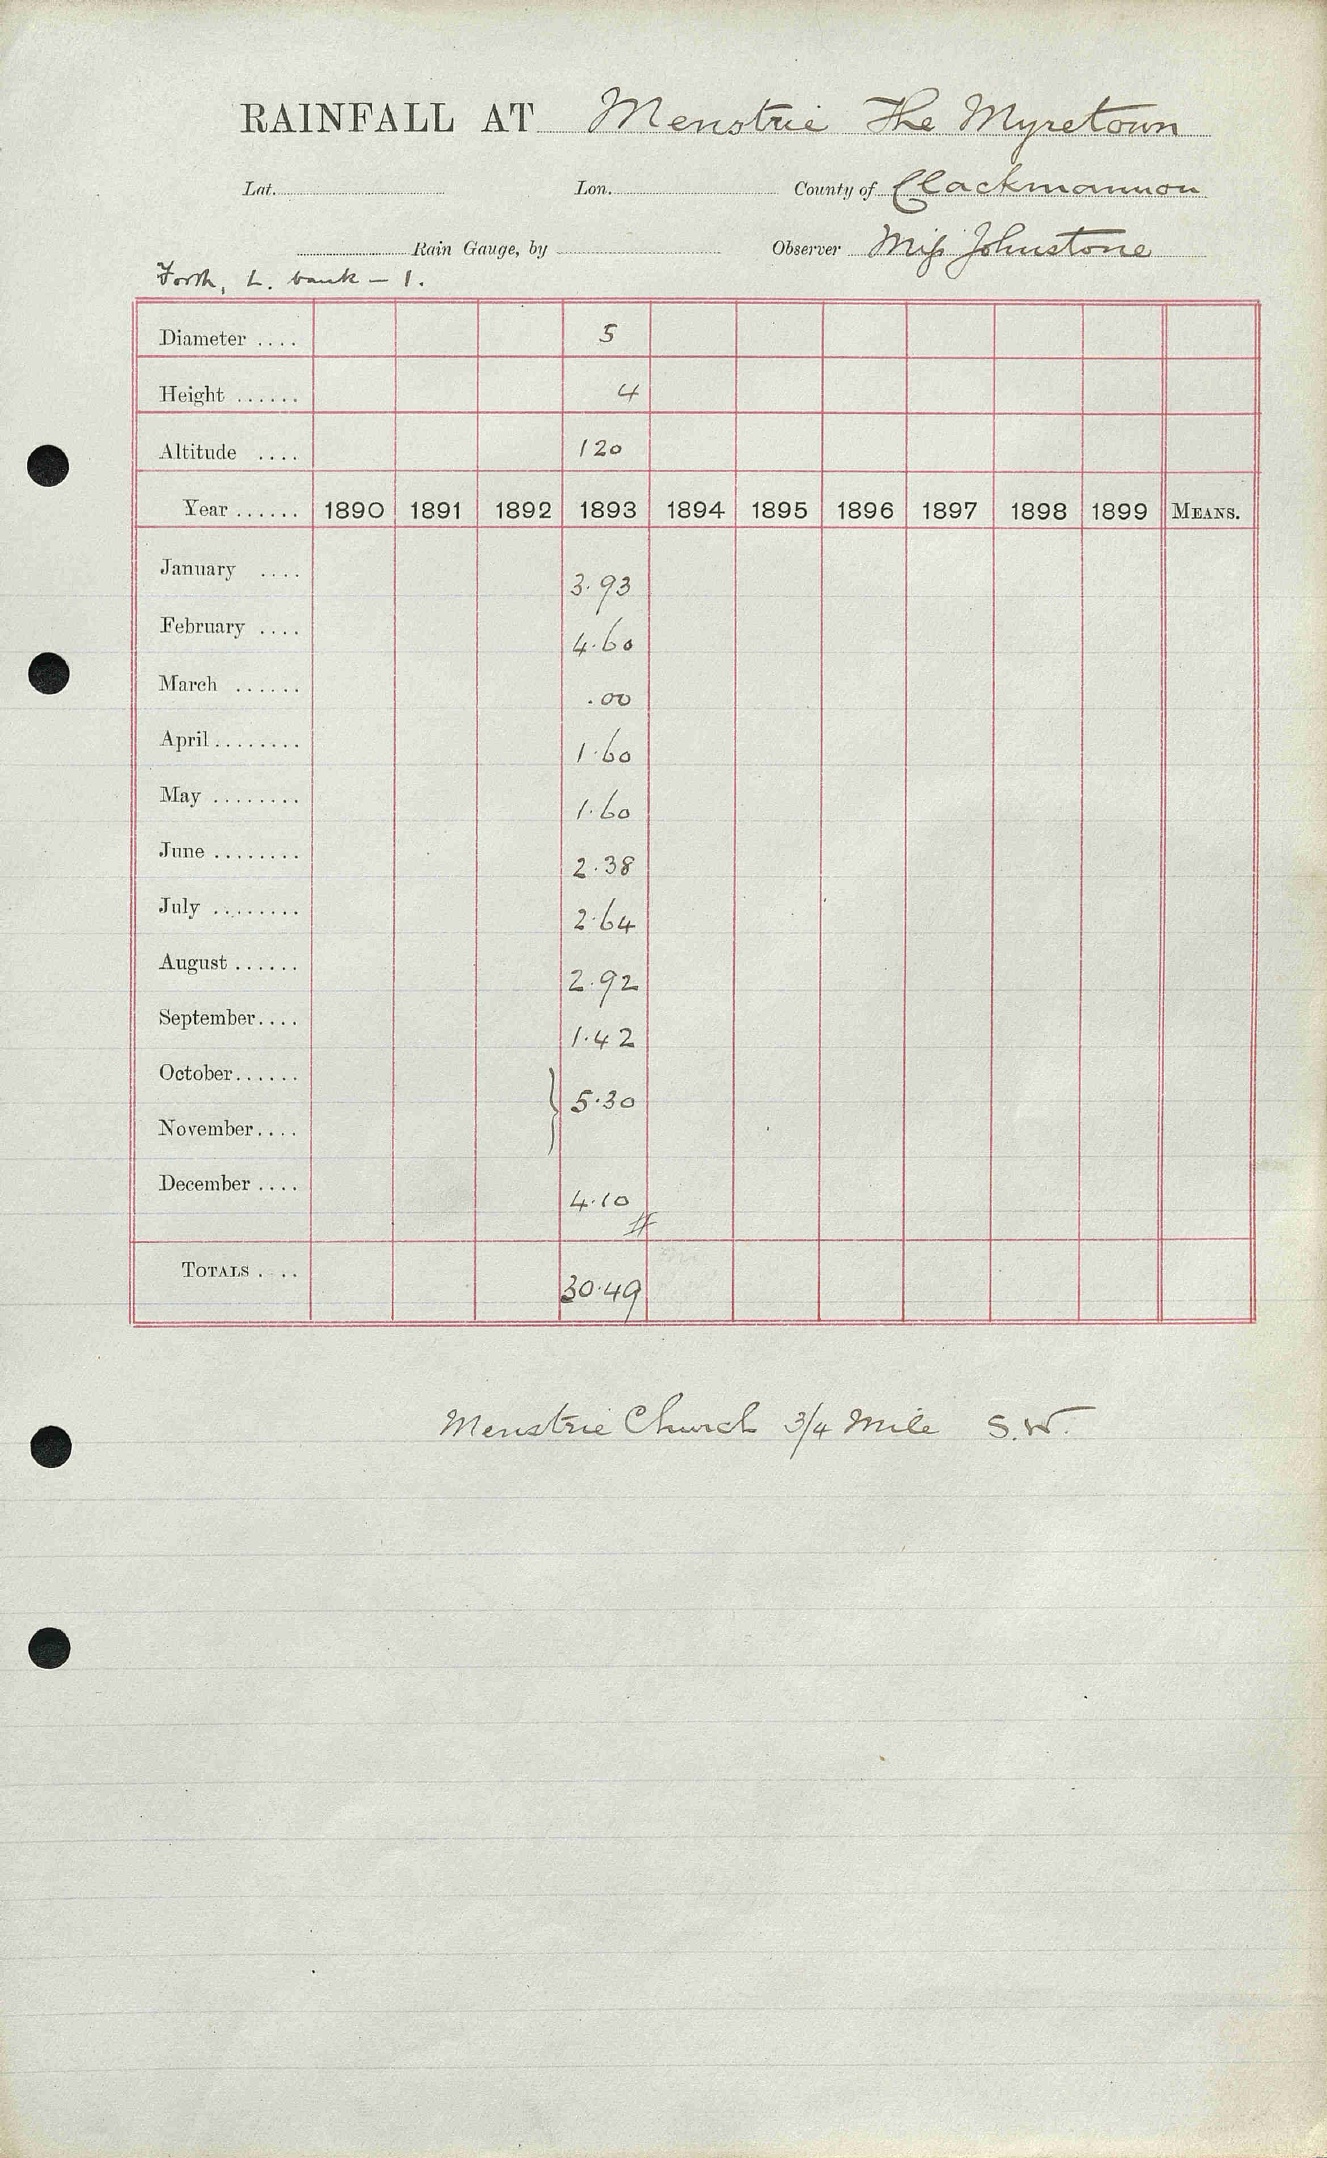 RAINFALL AT Menstrie The Myretown
Lat. Lon. County of Clackmannon
Rain Gauge, by Observer Miss Johnstone
Forth, L. bank – 1.
Diameter .... 5
Height ...... 4
Altitude .... 120
Year ...... 1890 1891 1892 1893 1894 1895 1896 1897 1898 1899 MEANS.
January .... 3.93
February .... 4.60
March ...... .00
April ........ 1.60
May ........ 1.60
June ........ 2.38
July ........ 2.64
August ...... 2.92
September .... 1.42
October ...... } 5.30
November ....
December .... 4.10
#
TOTALS .... 30.49
Menstrie Church 3/4 Mile S.W.